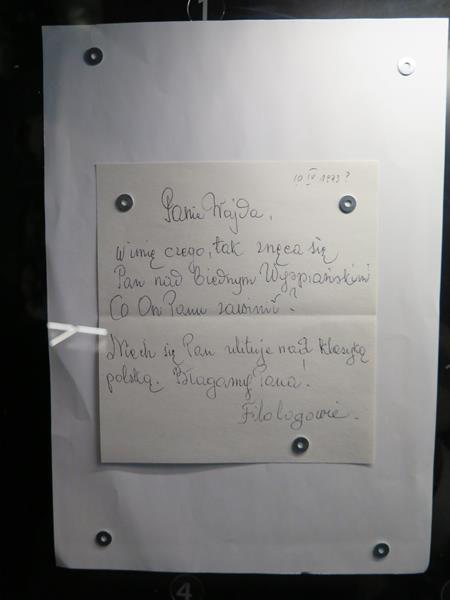 1
10 IV 1973 ?
Panie Wajda,
W imię czego, tak znęca się
Pan nad biednym Wyspiańskim?
Co On Panu zawinił?
Niech się Pan ulituje nad klasyką
polską. Błagamy Pana!
Filologowie.
4